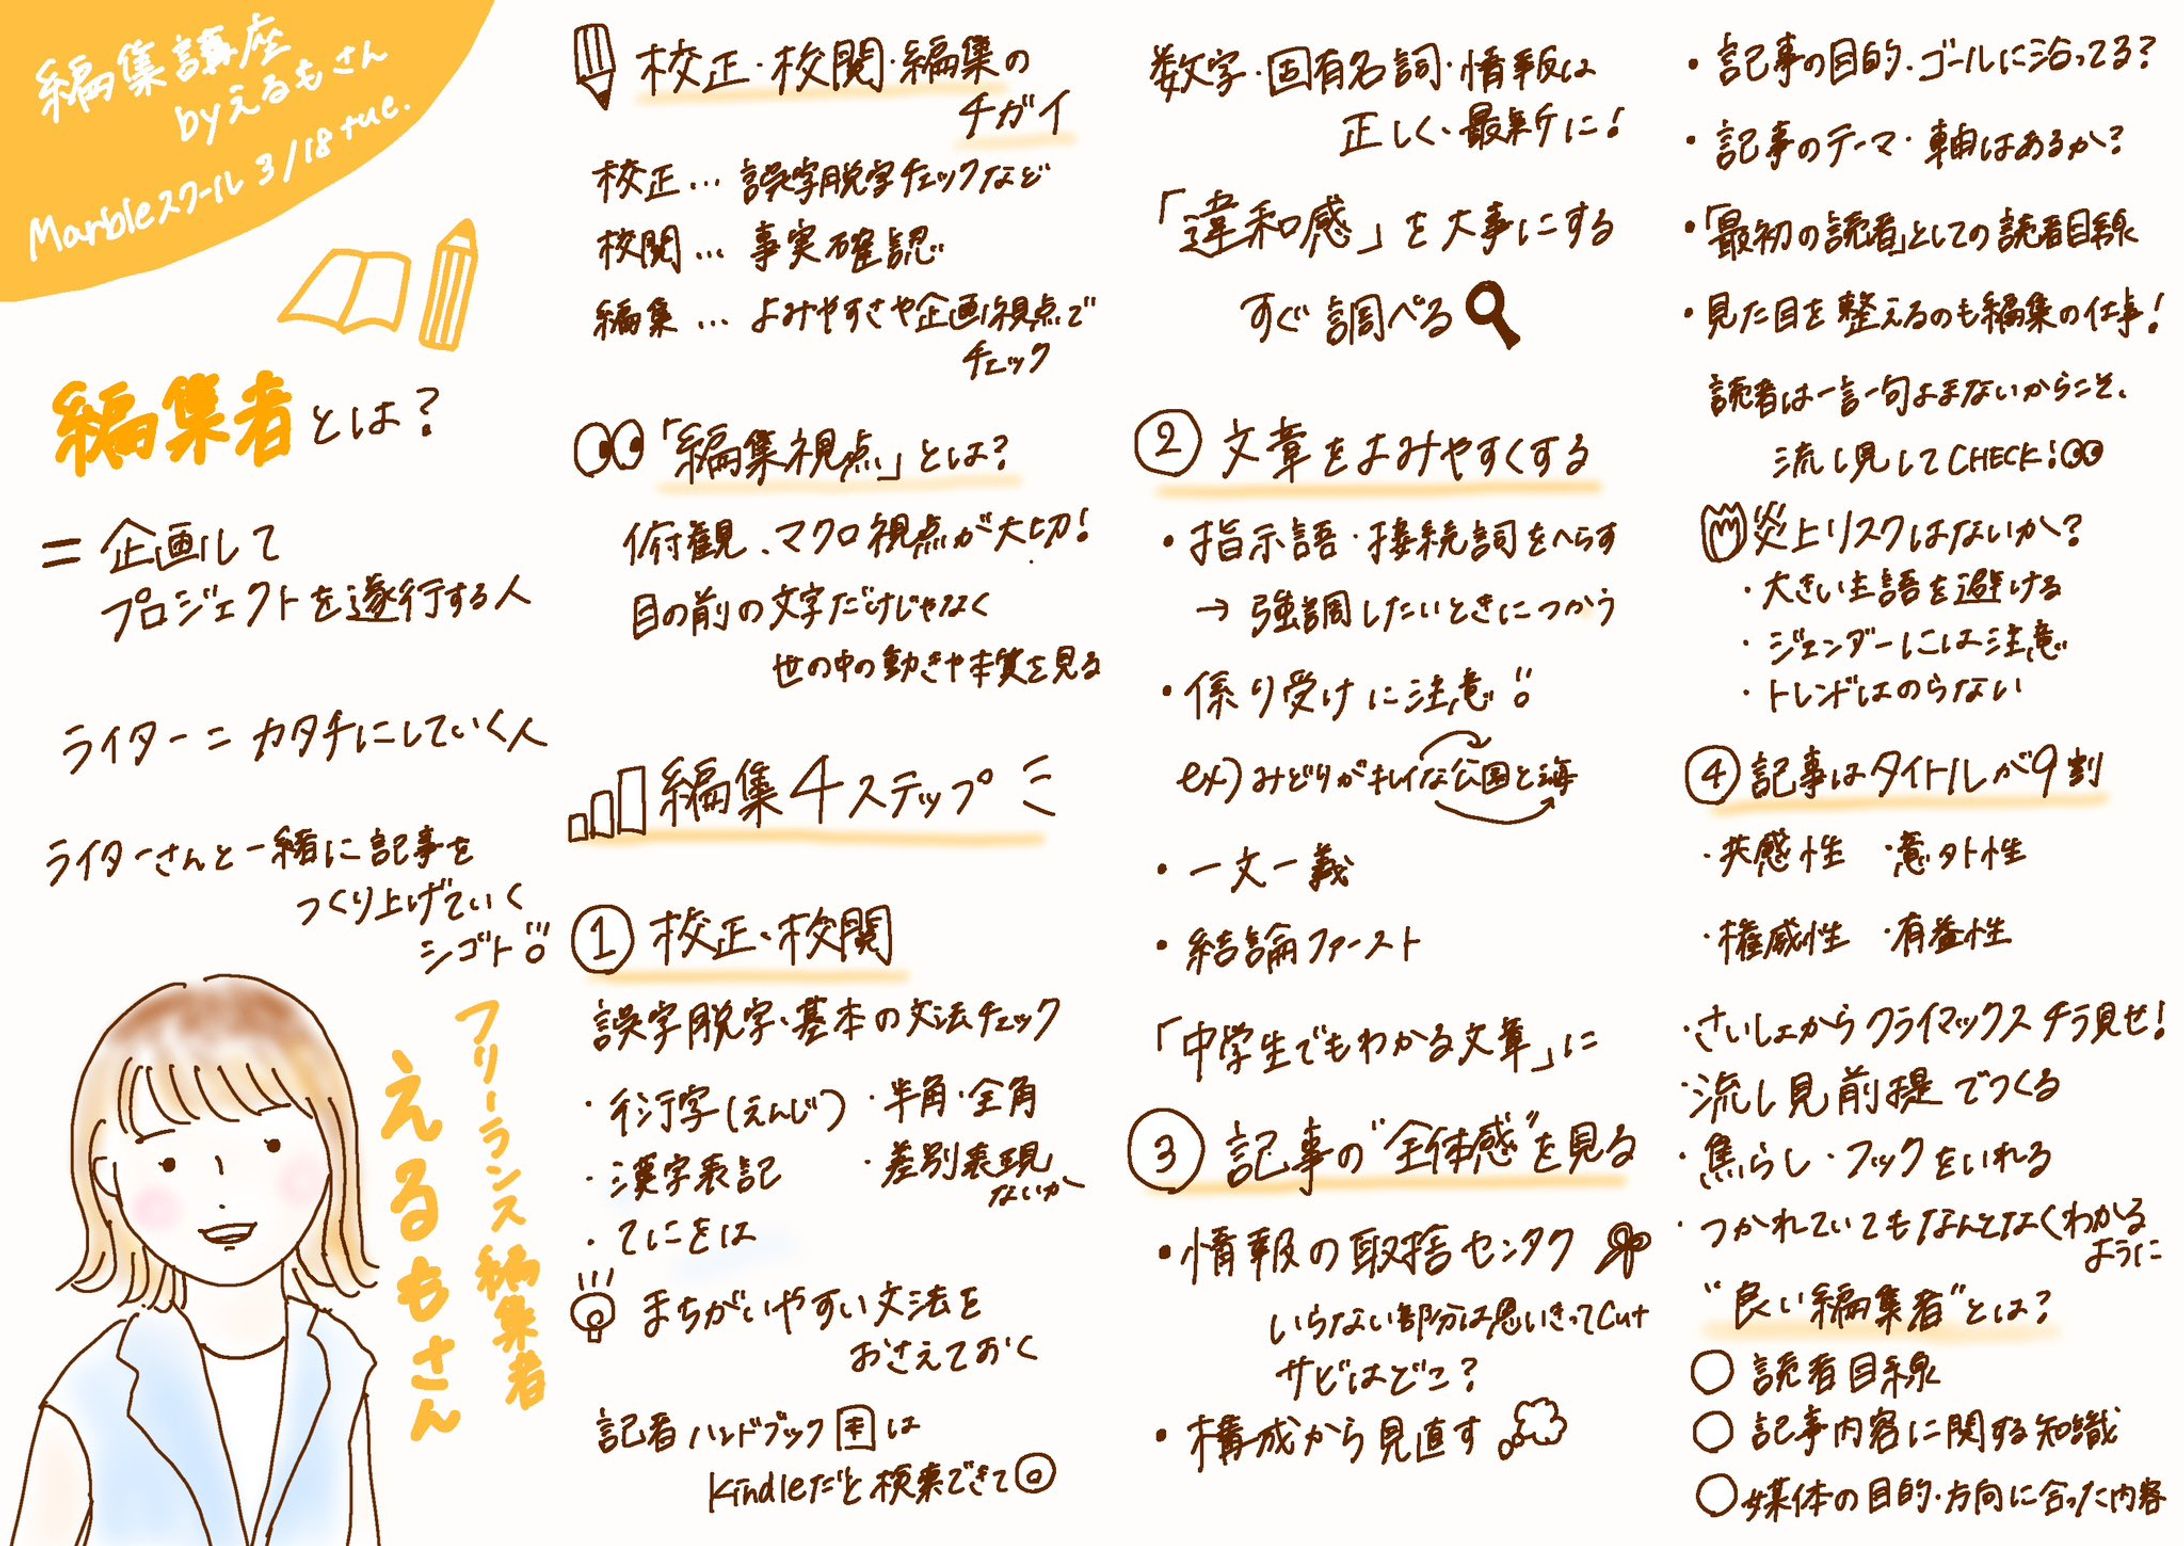 編集講座
byえるもさん
Marbleスクール 3/18 tue.
編集者とは?
=企画して
プロジェクトを遂行する人
ライター=カタチにしていく人
ライターさんと一緒に記事を
つくり上げていく
シゴト!!
フリーランス編集者
えるもさん
校正・校閲・編集の
チガイ
校正…誤字脱字チェックなど
校閲…事実確認
編集…よみやすさや企画視点で
チェック
「編集視点」とは?
俯観、マクロ視点が大切!
目の前の文字だけじゃなく
世の中の動きや本質を見る
編集4ステップ
① 校正、校閲
誤字脱字、基本の文法チェック
・衍字(えんじ) ・半角・全角
・漢字表記 ・差別表現
ないか
・てにをは
まちがいやすい文法を
おさえておく
記者ハンドブックは
Kindleだと検索できて◎
数字・固有名詞・情報は
正しく、最新に!
「違和感」を大事にする
すぐ調べる
② 文章をよみやすくする
・指示語・接続詞をへらす
→強調したいときにつかう
・係り受けに注意!!
ex)みどりがキレイな公園と海
・一文一義
・結論ファースト
「中学生でもわかる文章」に
③ 記事の"全体感"を見る
・情報の取捨センタク
いらない部分は思いきってCut
サビはどこ?
・構成から見直す
・記事の目的、ゴールに沿ってる?
・記事のテーマ・軸はあるか?
・「最初の読者」としての読者目線
・見た目を整えるのも編集の仕事!
読者は一言一句よまないからこそ、
流し見してCHECK!
炎上リスクはないか?
・大きい主語を避ける
・ジェンダーには注意
・トレンドはのらない
④ 記事はタイトルが9割
・共感性 ・意外性
・権威性 ・有益性
・さいしょからクライマックスチラ見せ!
・流し見前提でつくる
・焦らし・フックをいれる
・つかれていてもなんとなくわかる
ように
"良い編集者"とは?
○ 読者目線
○ 記事内容に関する知識
○ 媒体の目的・方向に合った内容